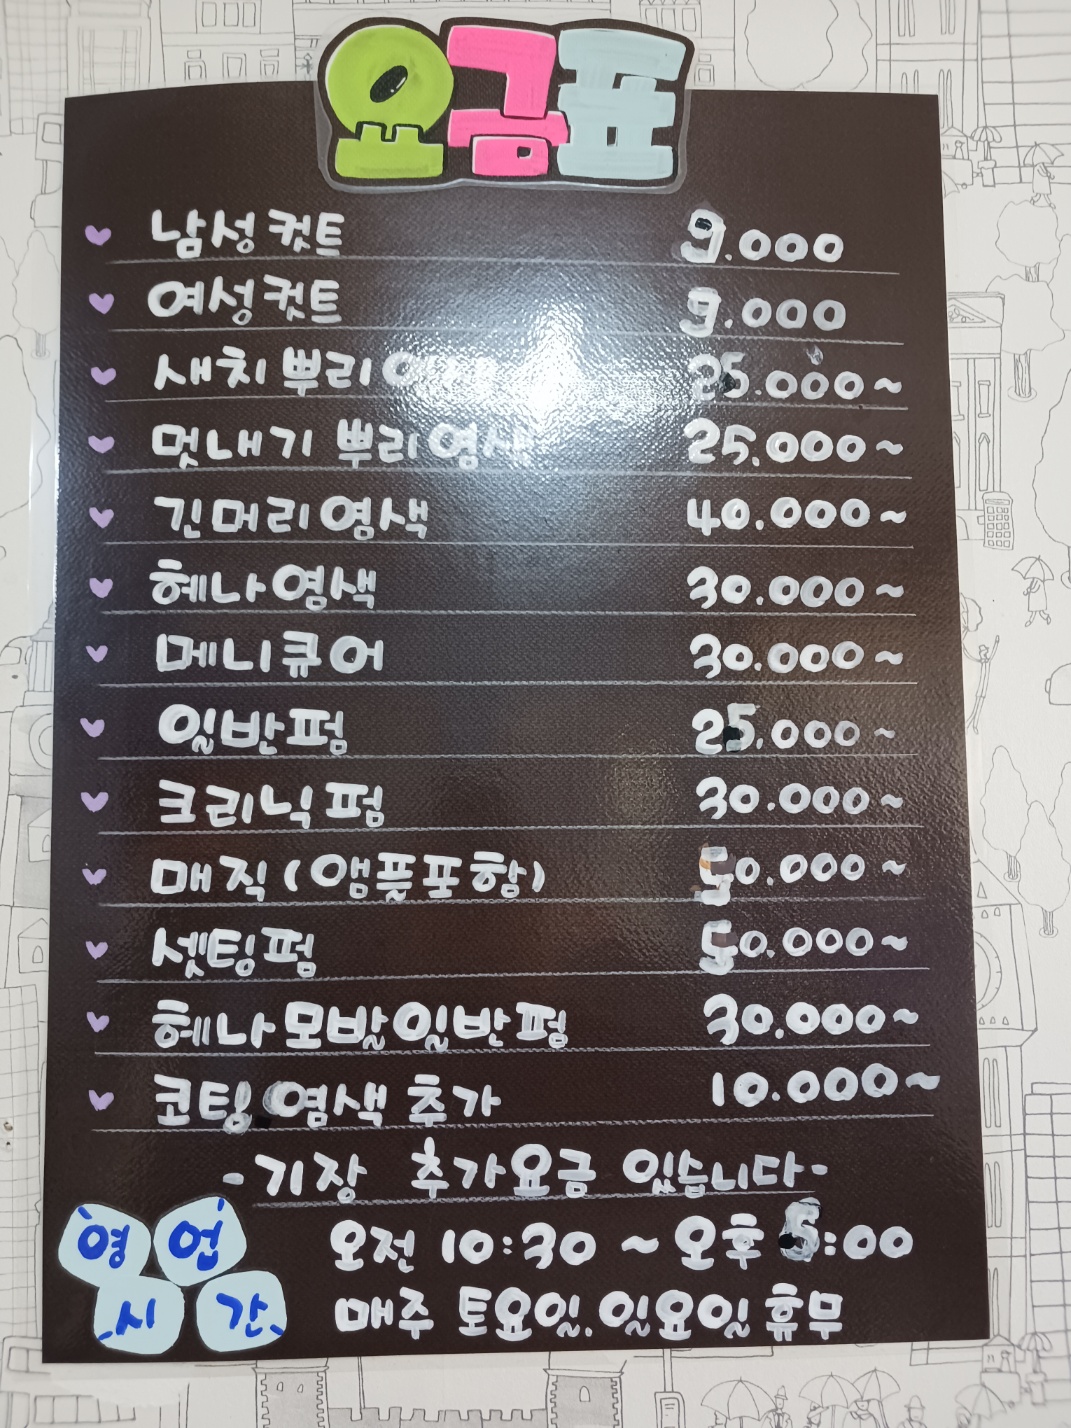 요금표
남성컷트 9.000
여성컷트 9.000
새치 뿌리 25.000~
멋내기 뿌리염색 25.000~
긴머리염색 40.000~
헤나염색 30.000~
메니큐어 30.000~
일반펌 25.000~
크리닉펌 30.000~
매직(앰플포함) 50.000~
셋팅펌 50.000~
헤나모발일반펌 30.000~
코팅.염색 추가 10.000~
-기장 추가요금 있습니다-
영업시간
오전 10:30 ~ 오후 5:00
매주 토요일.일요일 휴무